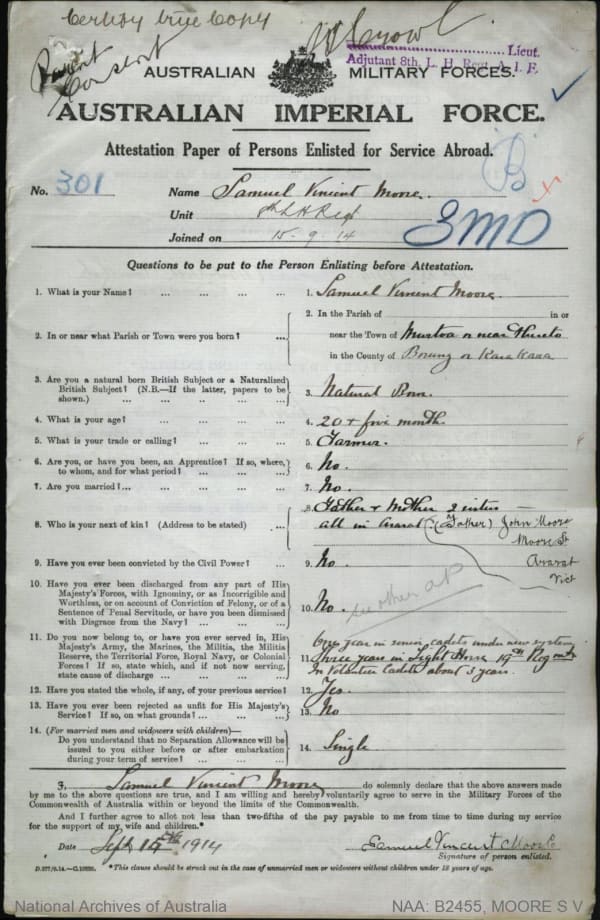 Certify true Copy
Parent
Consent
Lieut.
Adjutant 8th. L. H. Regt. A. I. F.
AUSTRALIAN MILITARY FORCES.
AUSTRALIAN IMPERIAL FORCE.
Attestation Paper of Persons Enlisted for Service Abroad.
B
No. 301 Name Samuel Vincent Moore.
Unit 8th L H Regt
Joined on 15-9-14
Questions to be put to the Person Enlisting before Attestation.
1. What is your Name? ... ... ... ... 1. Samuel Vincent Moore.
2. In or near what Parish or Town were you born? ... 2. In the Parish of in or
near the Town of Murtoa or near
in the County of Borung or Kara Kara
3. Are you a natural born British Subject or a Naturalized
British Subject? (N.B.—If the latter, papers to be
shown.) ... ... ... ... 3. Natural Born.
4. What is your age? ... ... ... ... 4. 20 + five month.
5. What is your trade or calling? ... ... ... 5. Farmer.
6. Are you, or have you been, an Apprentice? If so, where,
to whom, and for what period? ... ... ... 6. No.
7. Are you married?... ... ... ... 7. No.
8. Who is your next of kin? (Address to be stated) ... 8. Father + Mother 2 sisters
all in Ararat (Father) John Moore
Moore St
Ararat
Vict
9. Have you ever been convicted by the Civil Power? ... 9. No.
10. Have you ever been discharged from any part of His
Majesty's Forces, with Ignominy, or as Incorrigible and
Worthless, or on account of Conviction of Felony, or of a
Sentence of Penal Servitude, or have you been dismissed
with Disgrace from the Navy? ... ... ... 10. No.
11. Do you now belong to, or have you ever served in, His
Majesty's Army, the Marines, the Militia, the Militia
Reserve, the Territorial Force, Royal Navy, or Colonial
Forces? If so, state which, and if not now serving,
state cause of discharge ... ... ... ... 11. One year in senior cadets under new system
Three years in Light Horse 19th Regmt
In Volunteer Cadets about 3 years.
12. Have you stated the whole, if any, of your previous service? 12. Yes.
13. Have you ever been rejected as unfit for His Majesty's
Service? If so, on what grounds? ... ... ... 13. No
14. (For married men and widowers with children)—
Do you understand that no Separation Allowance will be
issued to you either before or after embarkation
during your term of service? ... ... ... 14. Single
I, Samuel Vincent Moore do solemnly declare that the above answers made
by me to the above questions are true, and I am willing and hereby voluntarily agree to serve in the Military Forces of the
Commonwealth of Australia within or beyond the limits of the Commonwealth.
And I further agree to allot not less than two-fifths of the pay payable to me from time to time during my service
for the support of my wife and children.*
Date Sept 15th 1914 Samuel Vincent Moore
Signature of person enlisted.
D.277/9.14.—C.10930. *This clause should be struck out in the case of unmarried men or widowers without children under 18 years of age.
National Archives of Australia NAA: B2455, MOORE S V